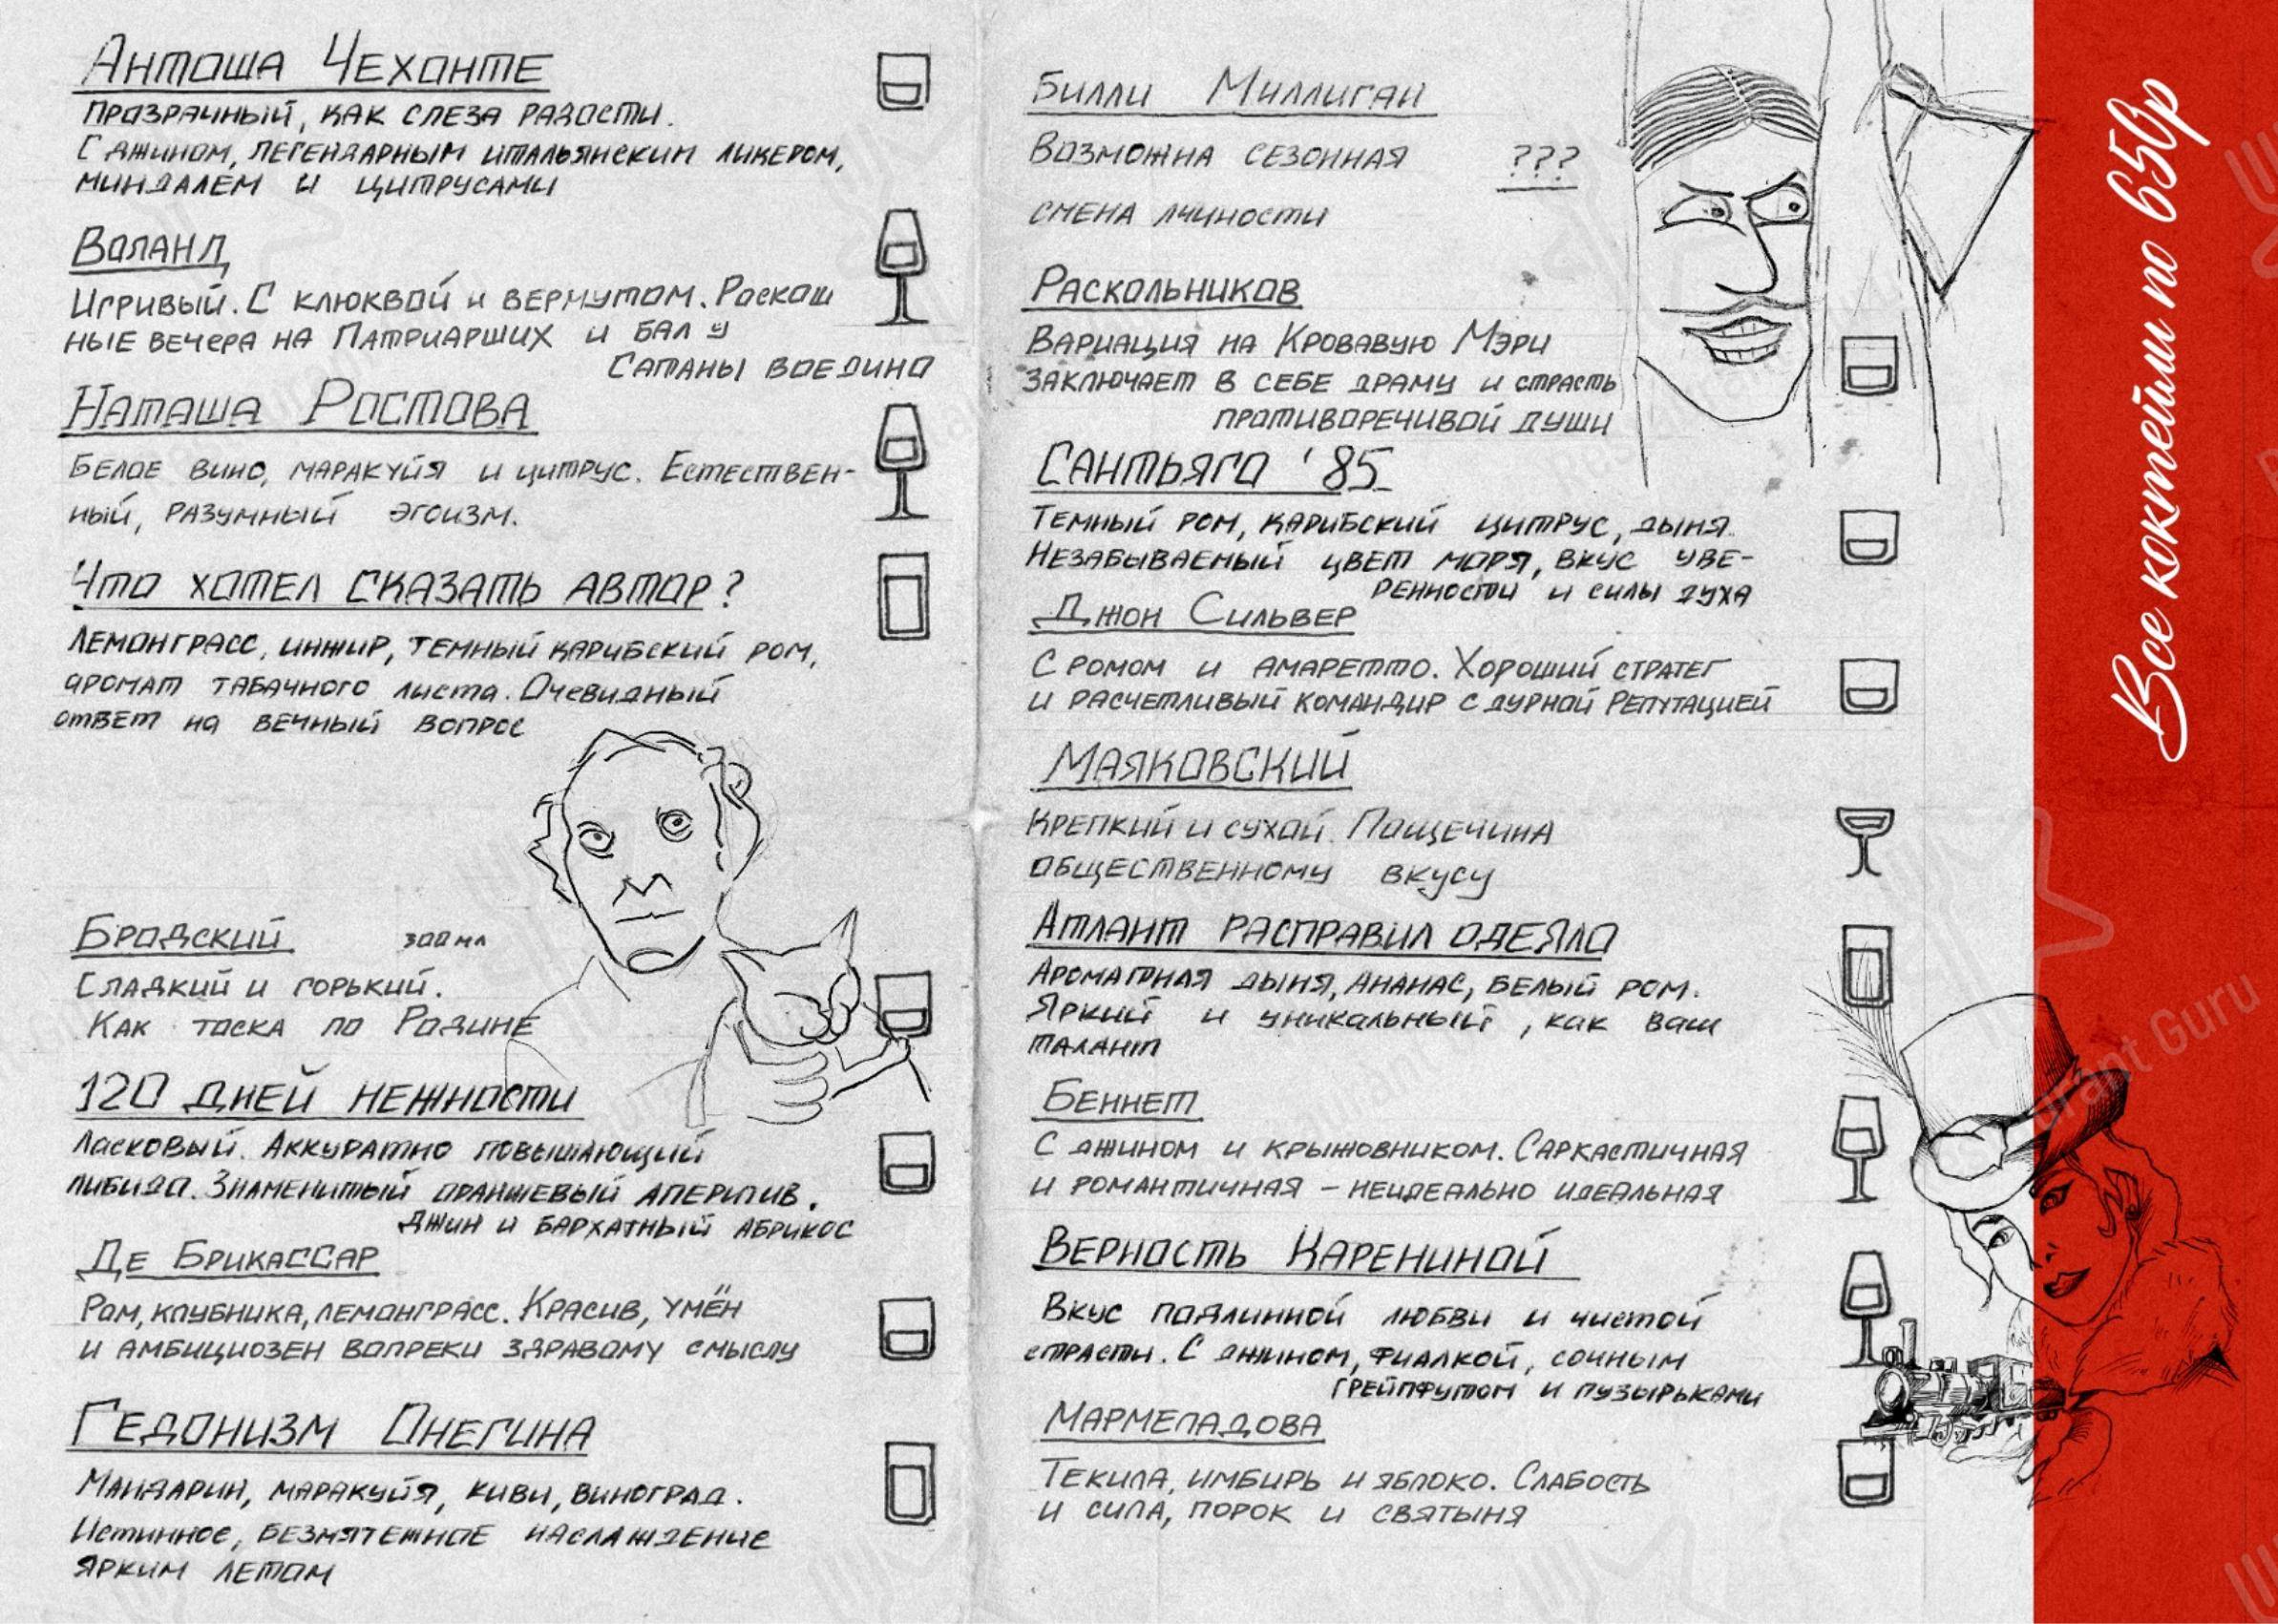 Антоша Чехонте
Прозрачный, как слеза радости.
С джином, легендарным итальянским ликером,
миндалем и цитрусами
Воланд
Игривый. С клюквой и вермутом. Роскош
ные вечера на Патриарших и бал у
Сатаны воедино
Наташа Ростова
Белое вино, маракуйя и цитрус. Естествен-
ный, разумный эгоизм.
Что хотел сказать автор?
Лемонграсс, инжир, темный карибский ром,
аромат табачного листа. Очевидный
ответ на вечный вопрос
Бродский 300 мл
Сладкий и горький.
Как тоска по Родине
120 дней нежности
Ласковый. Аккуратно повышающий
либидо. Знаменитый оранжевый аперитив.
джин и бархатный абрикос
Де Брикассар
Ром, клубника, лемонграсс. Красив, умён
и амбициозен вопреки здравому смыслу
Гедонизм Онегина
Мандарин, маракуйя, киви, виноград.
Истинное, безмятежное наслаждение
ярким летом
Билли Миллиган
Возможна сезонная ???
смена лчиности
Раскольников
Вариация на Кровавую Мэри
заключает в себе драму и страсть
противоречивой души
Сантьяго '85
Темный ром, карибский цитрус, дыня.
Незабываемый цвет моря, вкус уве-
ренности и силы духа
Джон Сильвер
С ромом и амаретто. Хороший стратег
и расчетливый командир с дурной репутацией
Маяковский
Крепкий и сухой. Пощечина
общественному вкусу
Атлант расправил одеяло
Ароматная дыня, ананас, белый ром.
Яркий и уникальный, как ваш
талант
Беннет
С джином и крыжовником. Саркастичная
и романтичная – неидеально идеальная
Верность Карениной
Вкус подлинной любви и чистой
страсти. С джином, фиалкой, сочным
грейпфутом и пузырьками
Мармеладова
Текила, имбирь и яблоко. Слабость
и сила, порок и святыня
Все коктейли по 650р
Restaurant Guru